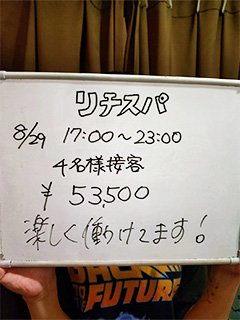 リチスパ
8/29 17:00〜23:00
4名様接客
¥ 53,500
楽しく働けてます!
BACK
FUTURE